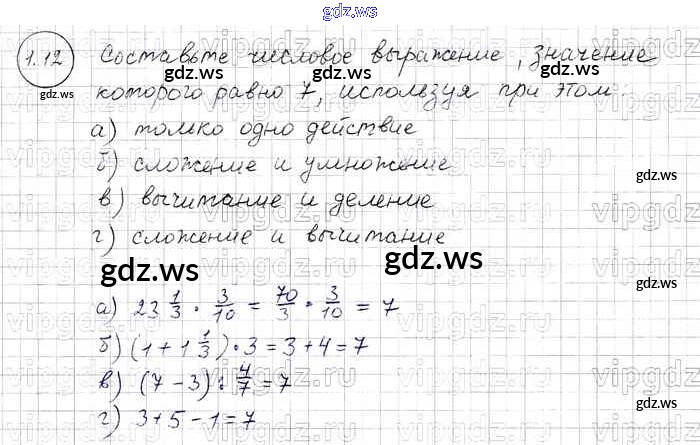 gdz.ws
1.12 Составьте числовое выражение, значение
gdz.ws gdz.ws gdz.ws
которого равно 7, используя при этом:
а) только одно действие
б) сложение и умножение
gdz.ws
в) вычитание и деление
г) сложение и вычитание
gdz.ws gdz.ws
gdz.ws
а) 23 1/3 · 3/10 = 70/3 · 3/10 = 7
б) (1 + 1 1/3) · 3 = 3 + 4 = 7
в) (7 - 3) : 4/7 = 7
gdz.ws
г) 3 + 5 - 1 = 7
gdz.ws gdz.ws